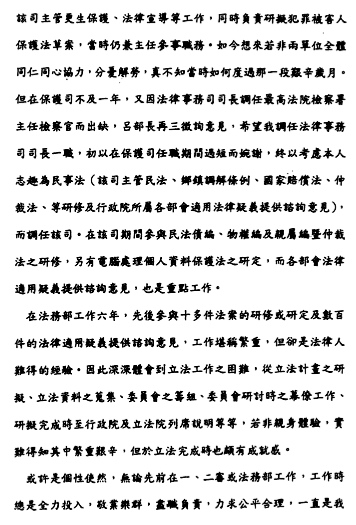 該司主管更生保護、法律宣導等工作，同時負責研擬犯罪被害人
保護法草案，當時仍兼主任參事職務。如今想來若非兩單位全體
同仁同心協力，分憂解勞，真不知當時如何度過那一段艱辛歲月。
但在保護司不及一年，又因法律事務司司長調任最高法院檢察署
主任檢察官而出缺，呂部長再三徵詢意見，希望我調任法律事務
司司長一職，初以在保護司任職期間過短而婉謝，終以考慮本人
志趣為民事法（該司主管民法、鄉鎮調解條例、國家賠償法、仲
裁法、等研修及行政院所屬各部會適用法律疑義提供諮詢意見），
而調任該司。在該司期間參與民法債編、物權編及親屬編暨仲裁
法之研修，另有電腦處理個人資料保護法之研定，而各部會法律
適用疑義提供諮詢意見，也是重點工作。
在法務部工作六年，先後參與十多件法案的研修或研定及數百
件的法律適用疑義提供諮詢意見，工作堪稱繁重，但卻是法律人
難得的經驗。因此深深體會到立法工作之困難，從立法計畫之研
擬、立法資料之蒐集、委員會之籌組、委員會研討時之幕僚工作、
研擬完成時至行政院及立法院列席說明等等，若非親身體驗，實
難得知其中繁重艱辛，但於立法完成時也頗有成就感。
或許是個性使然，無論先前在一、二審或法務部工作，工作時
總是全力投入，敬業樂群，盡職負責，力求公平合理，一直是我